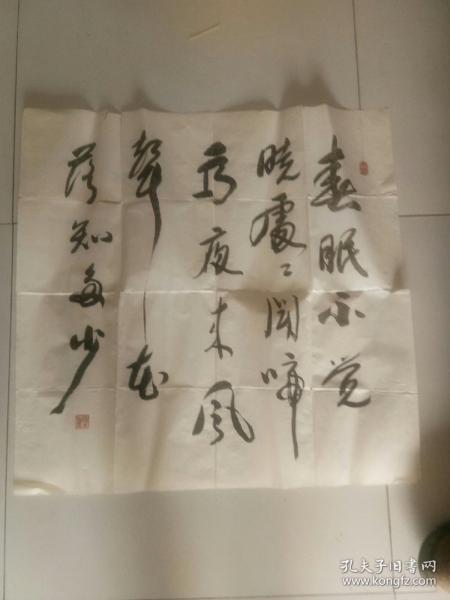 春眠不觉
晓處々闻啼
鸟夜来风
聲花
落知多少
孔夫子旧书网
www.kongfz.com